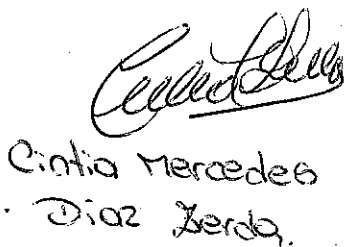 Cintia Mercedes
Diaz Zerda.